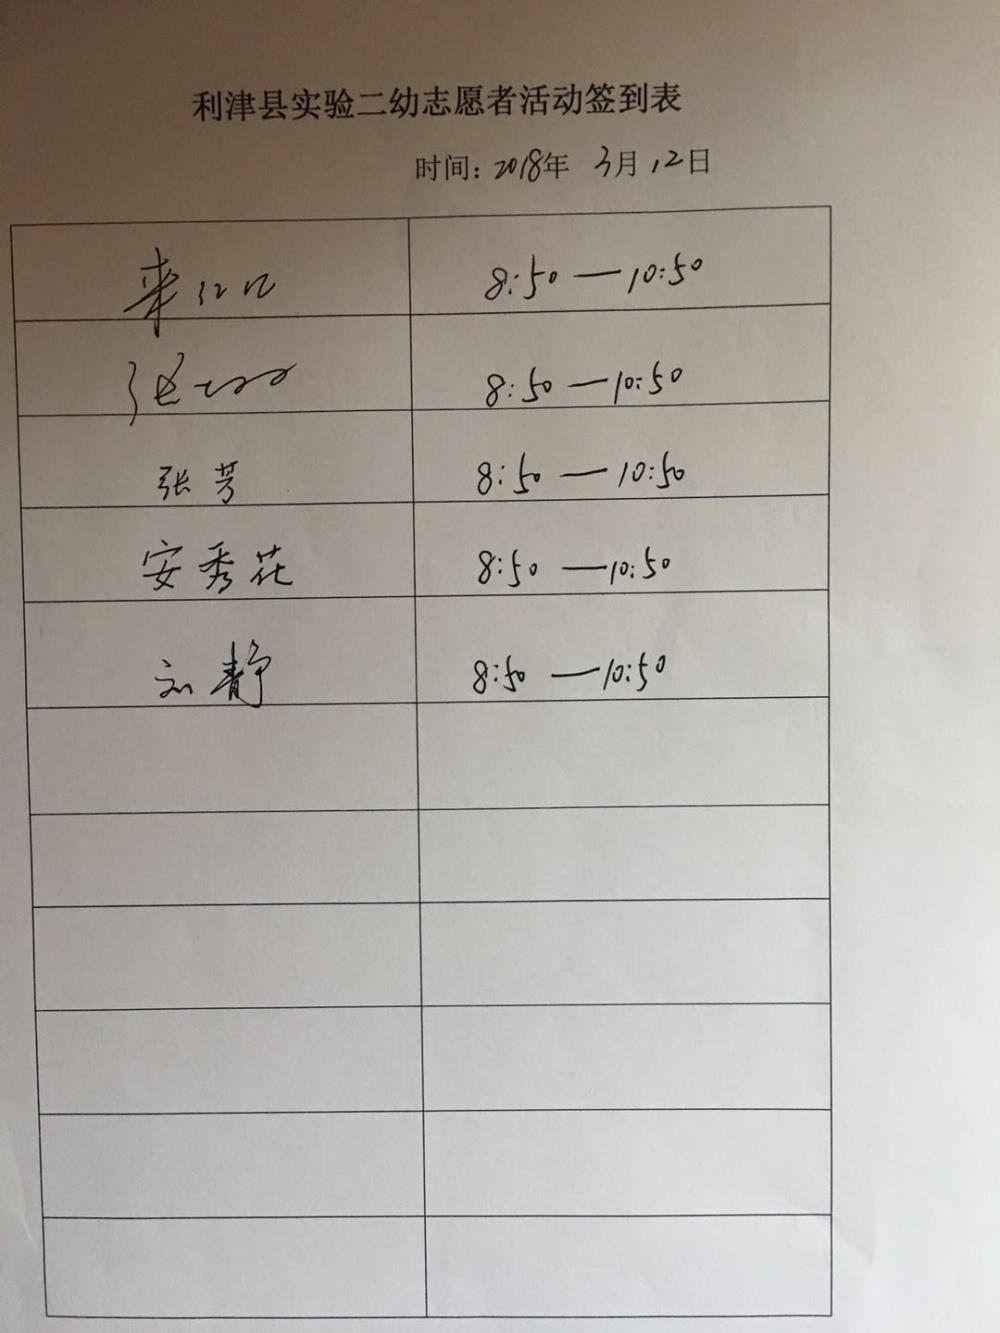 利津县实验二幼志愿者活动签到表
时间：2018年 3月12日
8:50—10:50
8:50—10:50
张芳 8:50—10:50
安秀花 8:50—10:50
刘静 8:50—10:50